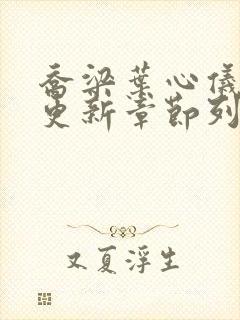 乔梁叶心仪
更新章节列
又夏浮生